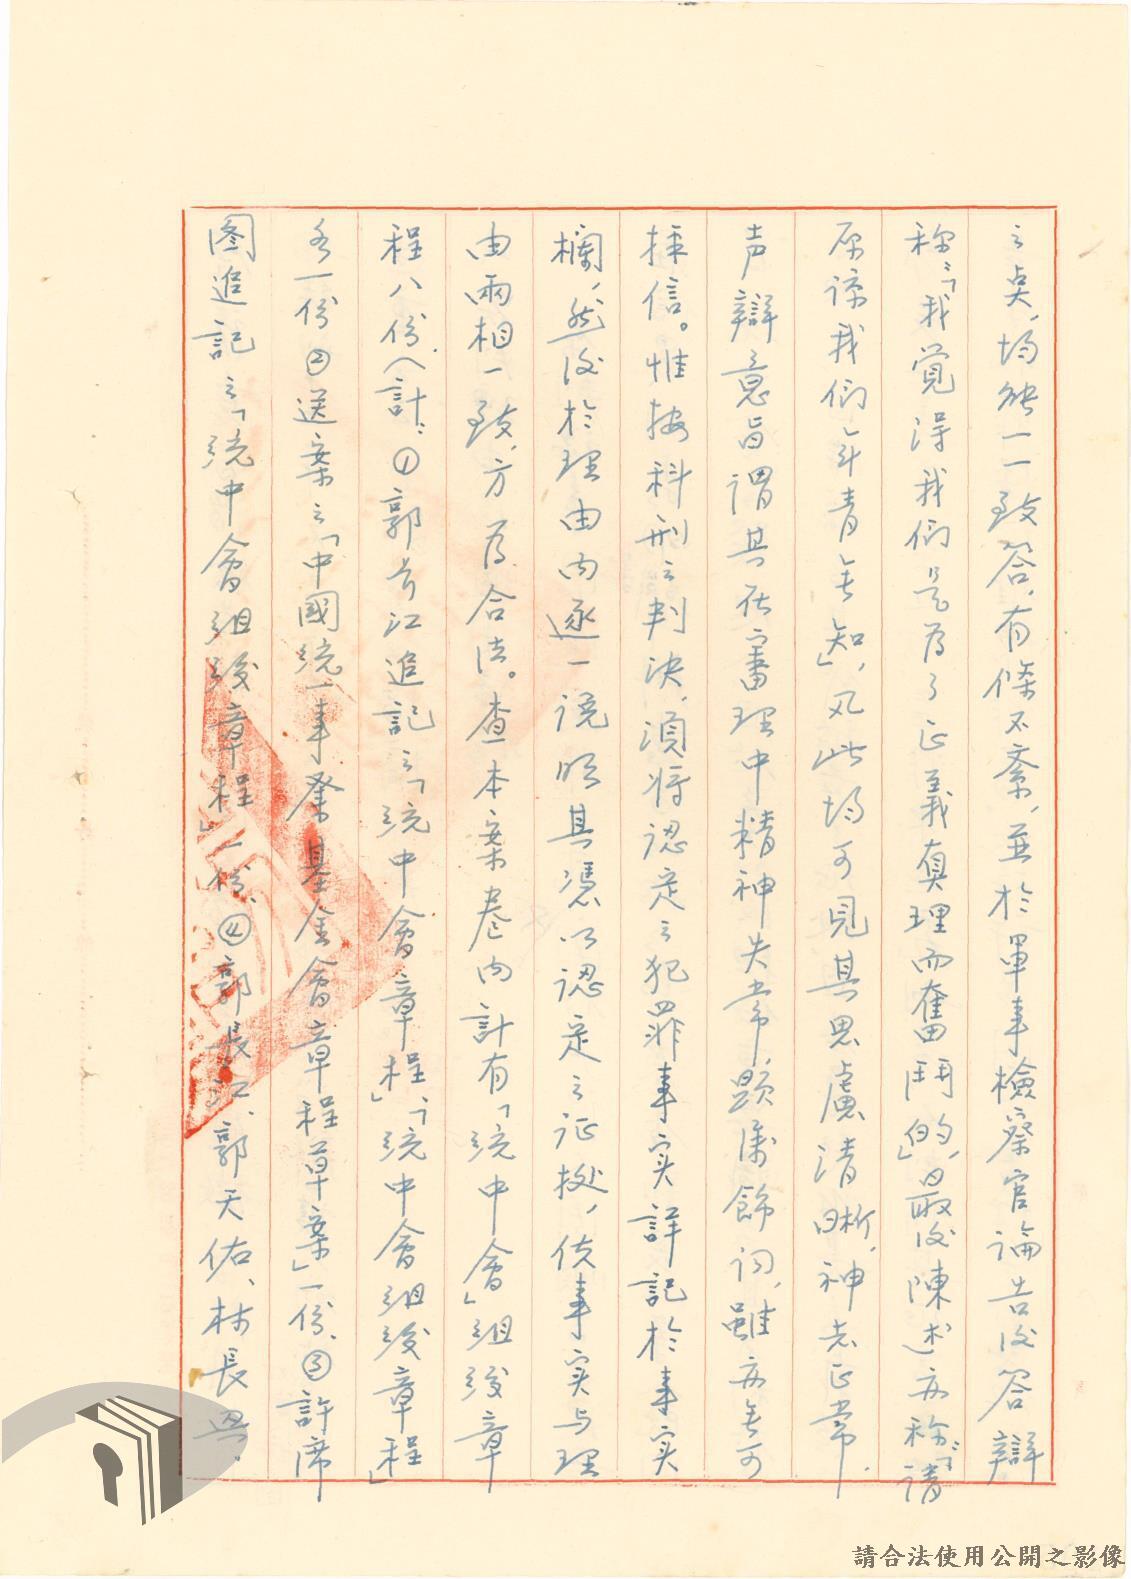 之点,均能一一致答,有條不紊,並於軍事檢察官論告後答辯
称:「我覺得我们是为了正義真理而奮鬥的」,最後陳述亦称:「請
原諒我们年青无知」,凡此均可見其思慮清晰,神志正常.
声辯意旨謂其在審理中精神失常顯係飾詞,雖亦无可
採信。惟按科刑之判決,須將認定之犯罪事实詳記於事实
欄,然後於理由內逐一説明其憑以認定之証據,使事实与理
由兩相一致,方为合法。查本案卷內計有「統中會」組織章
程八份,(計:①郭长江追記之「統中會章程」「統中會組織章程」
各一份②送案之「中國統一事業基金會章程草案」一份、③許席
图追記之「統中會組織章程」一份、④郭長江、郭天佑、林長
請合法使用公開之影像